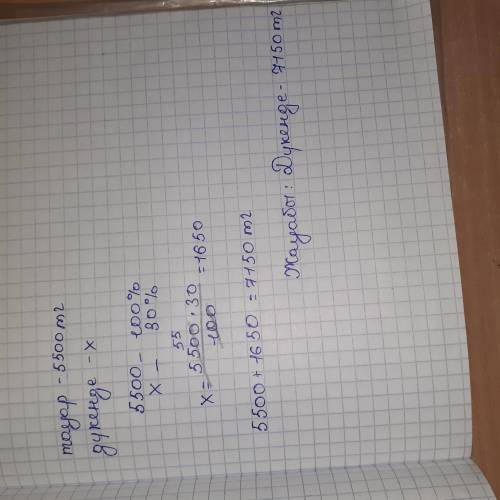 тауар - 5500 тг
дүкенде - х
5500 - 100%
х - 30%
55
х = 5500 · 30 = 1650
100
5500 + 1650 = 7150 тг
Жауабы: Дүкенде - 7150 тг